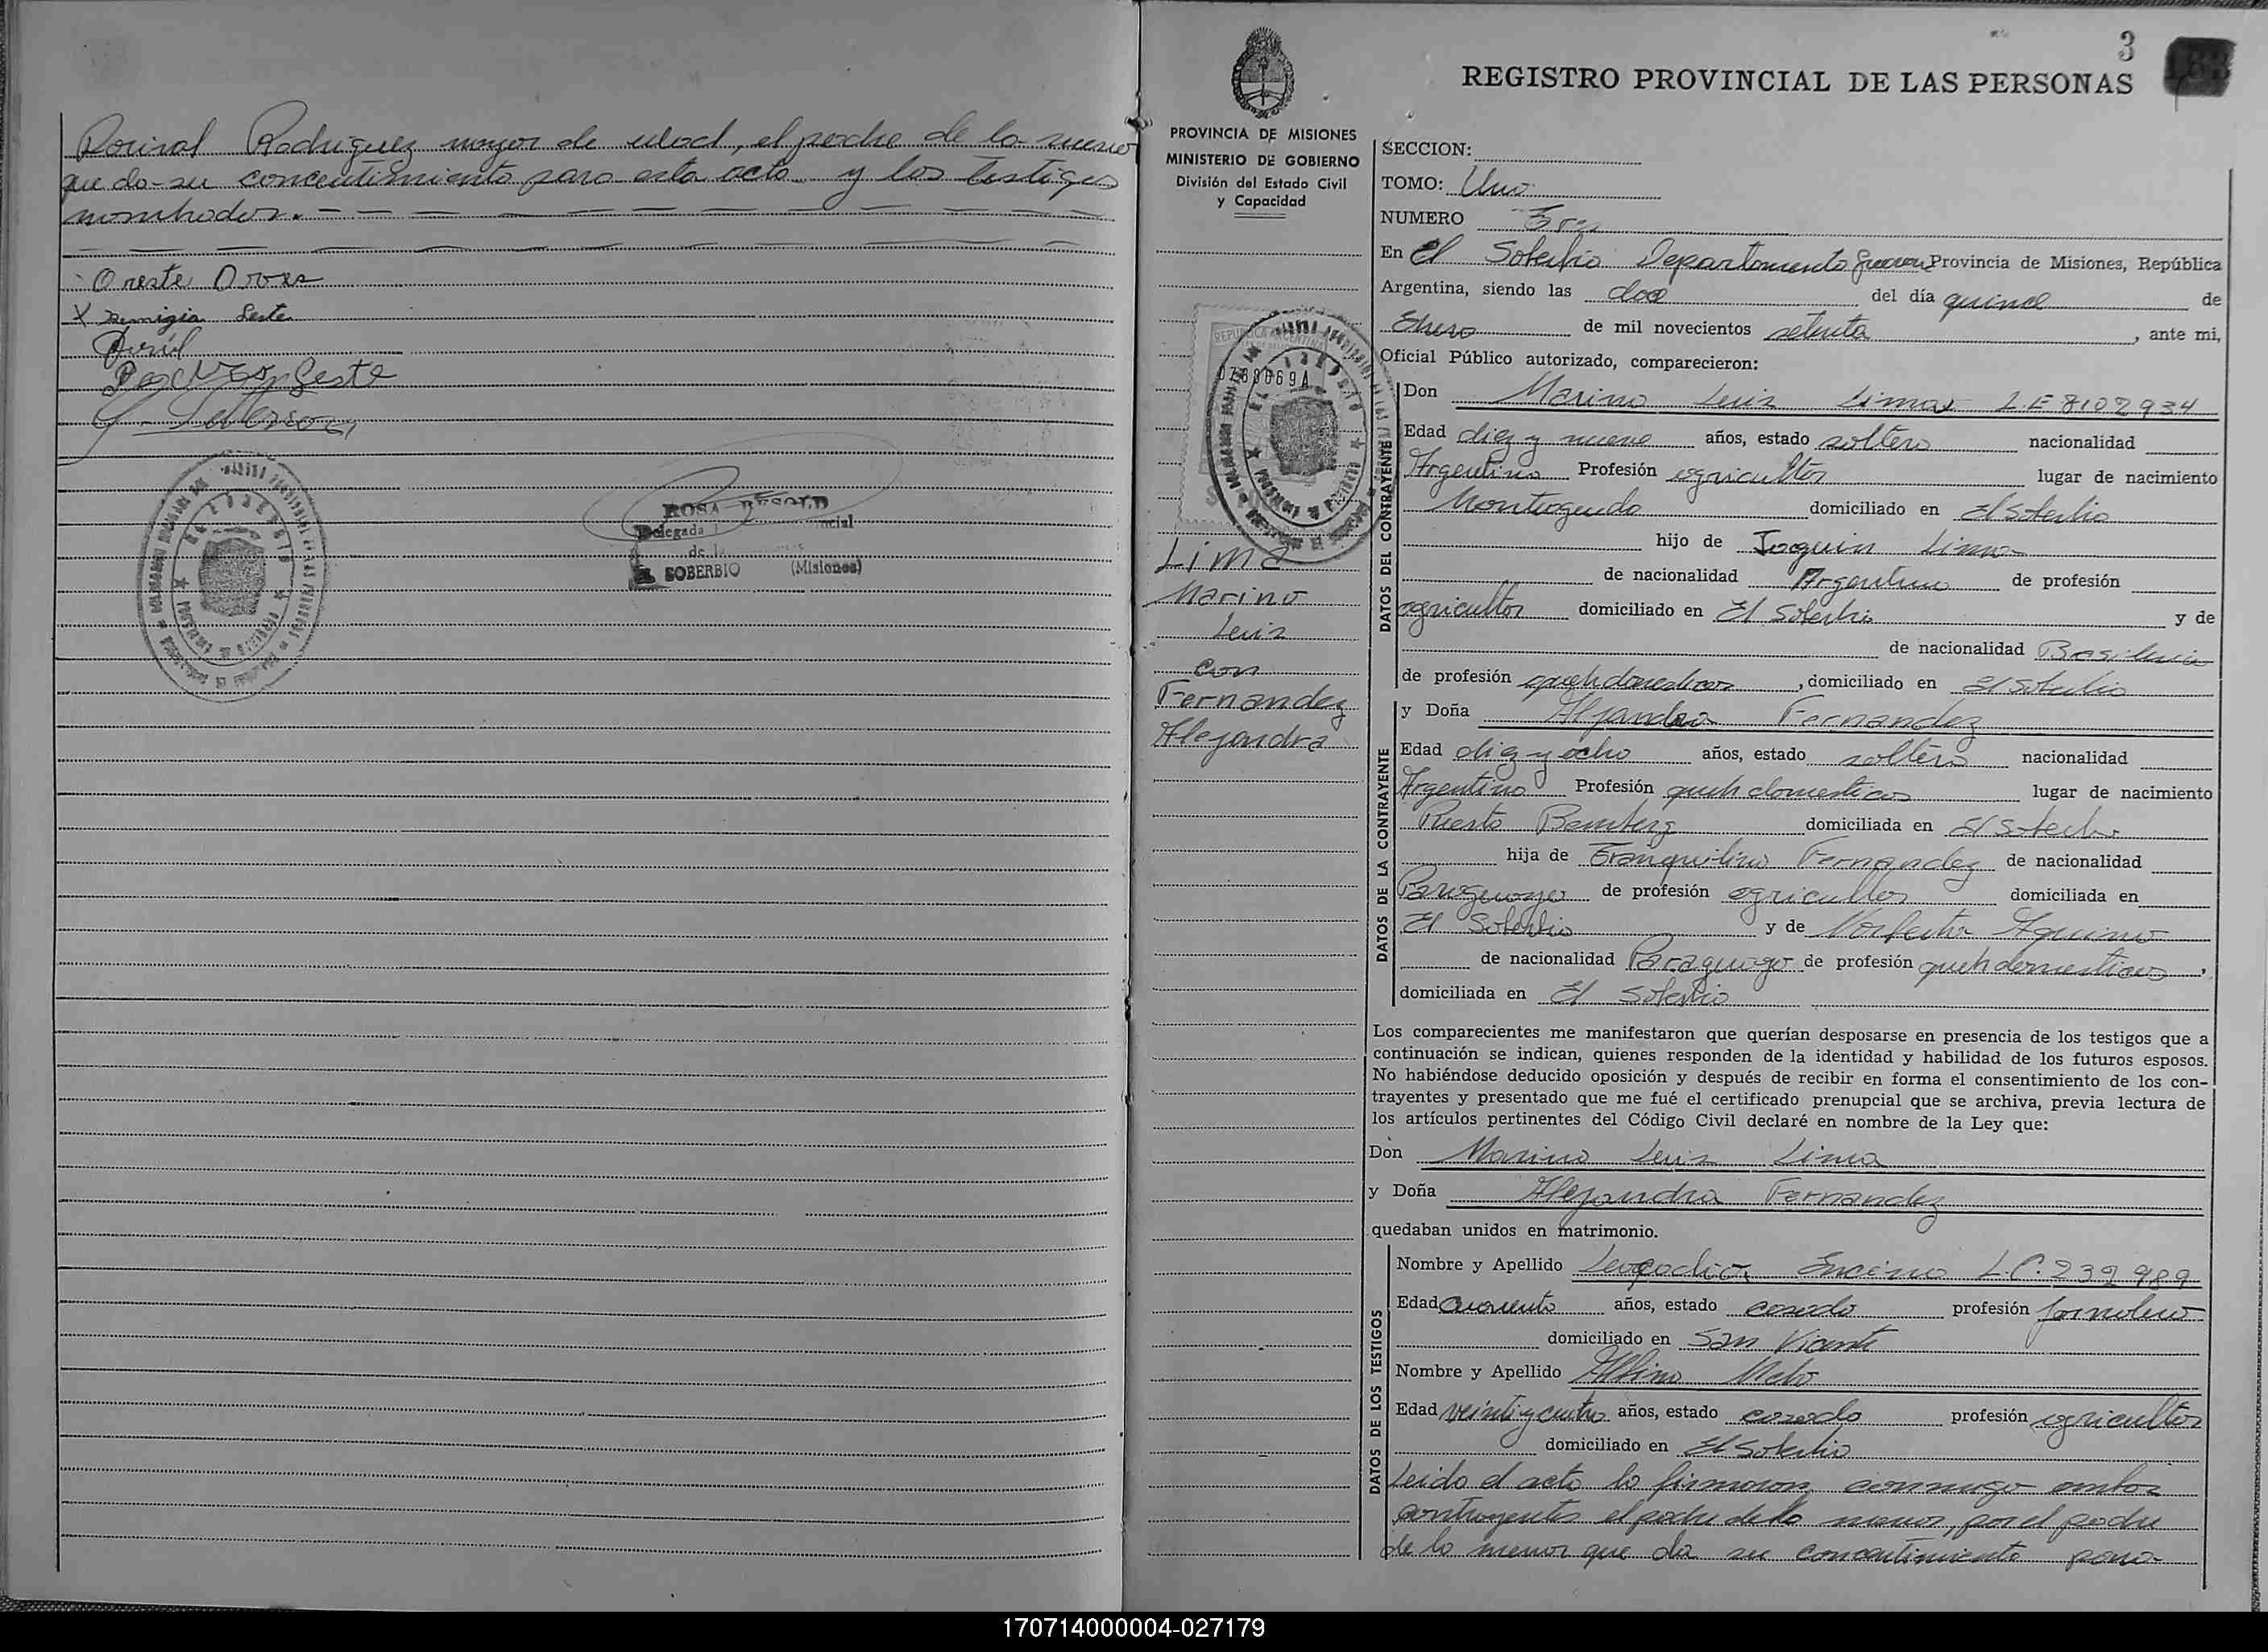 Rodriguez mayor de edad, el padre de la menor
que da su concentimiento para esta acto y los testigos
nombrados.
Oreste
X Remigia Seste
ROSA
Delegada
de la
EL SOBERBIO (Misiones)
3
REGISTRO PROVINCIAL DE LAS PERSONAS
PROVINCIA DE MISIONES
MINISTERIO DE GOBIERNO
División del Estado Civil
y Capacidad
REPUBLICA ARGENTINA
Lima
Marino
Luis
con
Fernandez
Alejandra
SECCION:
TOMO: Uno
NUMERO Tres
En El Soberbio Departamento Guarani Provincia de Misiones, República
Argentina, siendo las doce del día quince de
Enero de mil novecientos setenta, ante mi,
Oficial Público autorizado, comparecieron:
DATOS DEL CONTRAYENTE
Don Marino Luis Lima L E 8102934
Edad diez y nueve años, estado soltero nacionalidad
Argentino Profesión agricultor lugar de nacimiento
Monteagudo domiciliado en El Soberbio
hijo de Joquin Lima
de nacionalidad Argentino de profesión
agricultor domiciliado en El Soberbio y de
de nacionalidad Brasileña
de profesión queh domesticos, domiciliado en El Soberbio
DATOS DE LA CONTRAYENTE
y Doña Alejandra Fernandez
Edad diez y ocho años, estado soltera nacionalidad
Argentina Profesión queh domesticos lugar de nacimiento
Puerto Bemberg domiciliada en El Soberbio
hija de Tranquilino Fernandez de nacionalidad
Paraguayo de profesión agricultor domiciliada en
El Soberbio y de Aquino
de nacionalidad Paraguaya de profesión queh domesticos,
domiciliada en El Soberbio
Los comparecientes me manifestaron que querían desposarse en presencia de los testigos que a
continuación se indican, quienes responden de la identidad y habilidad de los futuros esposos.
No habiéndose deducido oposición y después de recibir en forma el consentimiento de los con-
trayentes y presentado que me fué el certificado prenupcial que se archiva, previa lectura de
los artículos pertinentes del Código Civil declaré en nombre de la Ley que:
Don Marino Luis Lima
y Doña Alejandra Fernandez
quedaban unidos en matrimonio.
DATOS DE LOS TESTIGOS
Nombre y Apellido Leopodio Encino L.C. 232 989
Edad cuarenta años, estado casado profesión jornalero
domiciliado en San Vicente
Nombre y Apellido Albino
Edad veintiycuatro años, estado casado profesión agricultor
domiciliado en El Soberbio
Leido el acta la firmaron conmigo ambos
contrayentes el padre de la menor, por el padre
de la menor que da su concentimiento para
170714000004-027179